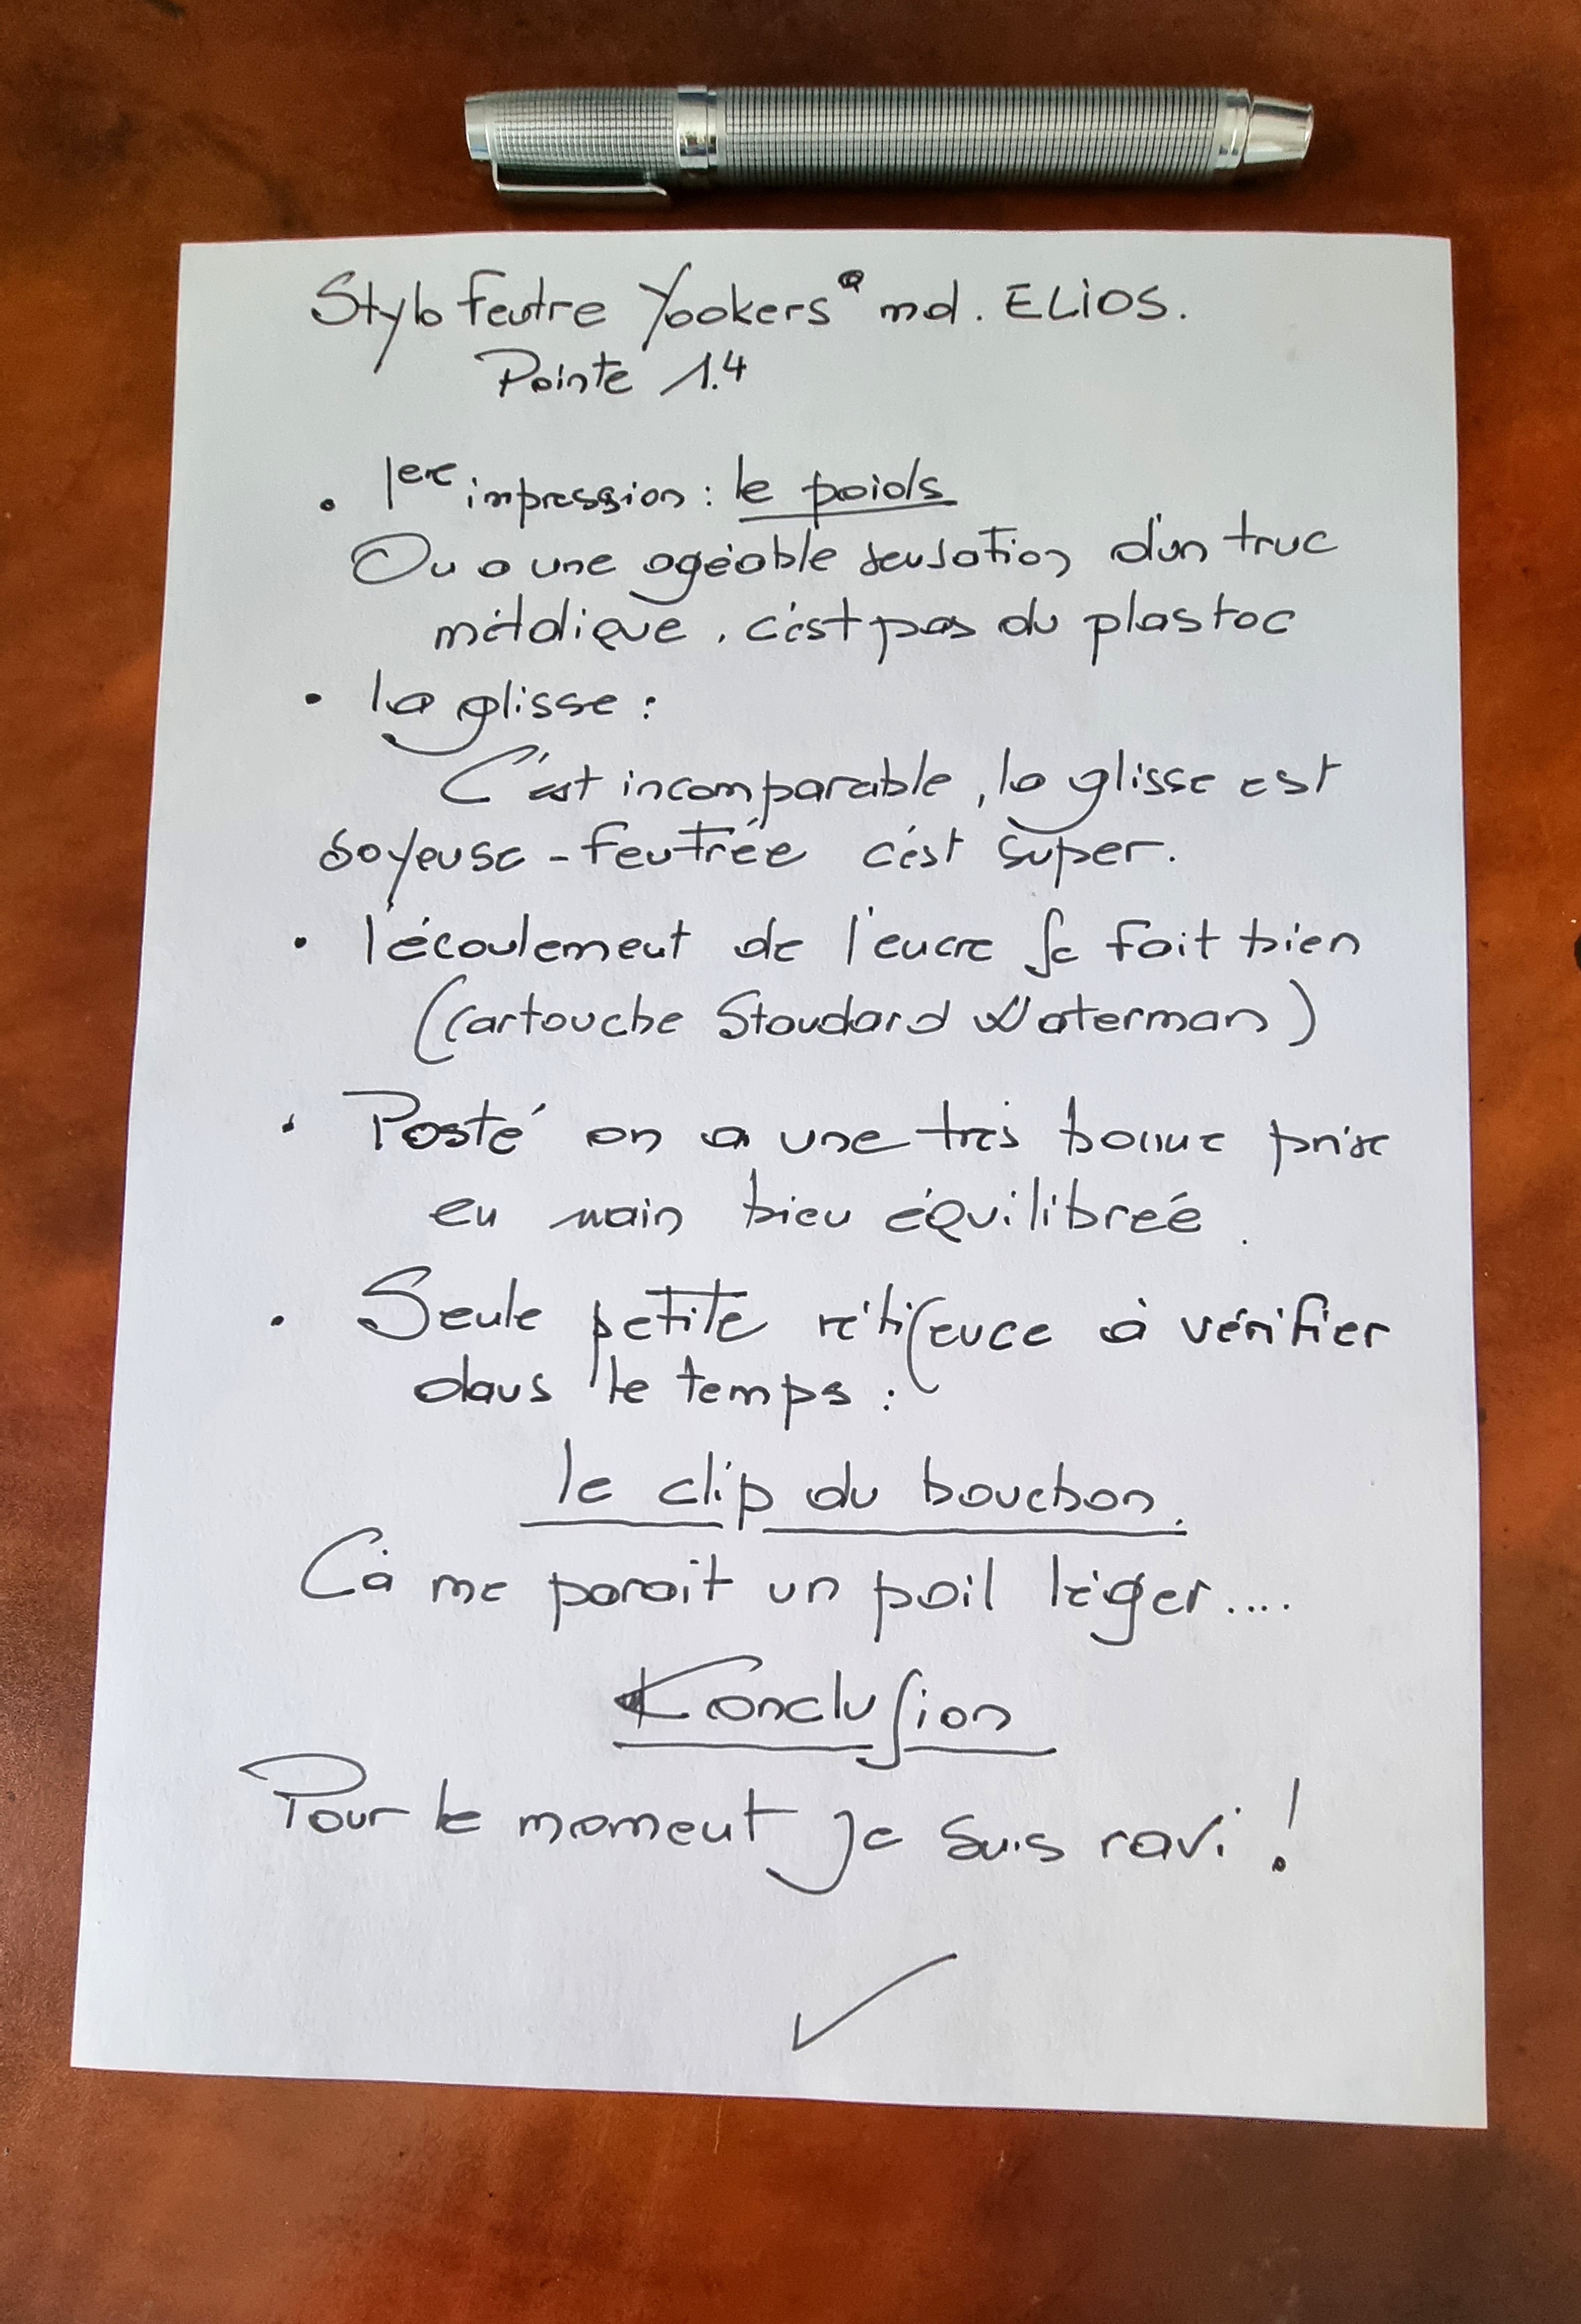 Stylo feutre Yookers® md. ELiOS.
Pointe 1.4
• 1ere impression : le poids
On a une agéable sensation d'un truc
métalique, c'est pas du plastoc
• la glisse :
C'est incomparable, la glisse est
soyeuse - feutrée c'est super.
• l'écoulement de l'encre se fait bien
(cartouche Standard Waterman)
• Posté on a une très bonne prise
en main bien équilibreé.
• Seule petite réticence à vérifier
dans le temps :
le clip du bouchon.
Cà me parait un poil léger....
Konclusion
Pour le moment je suis ravi !